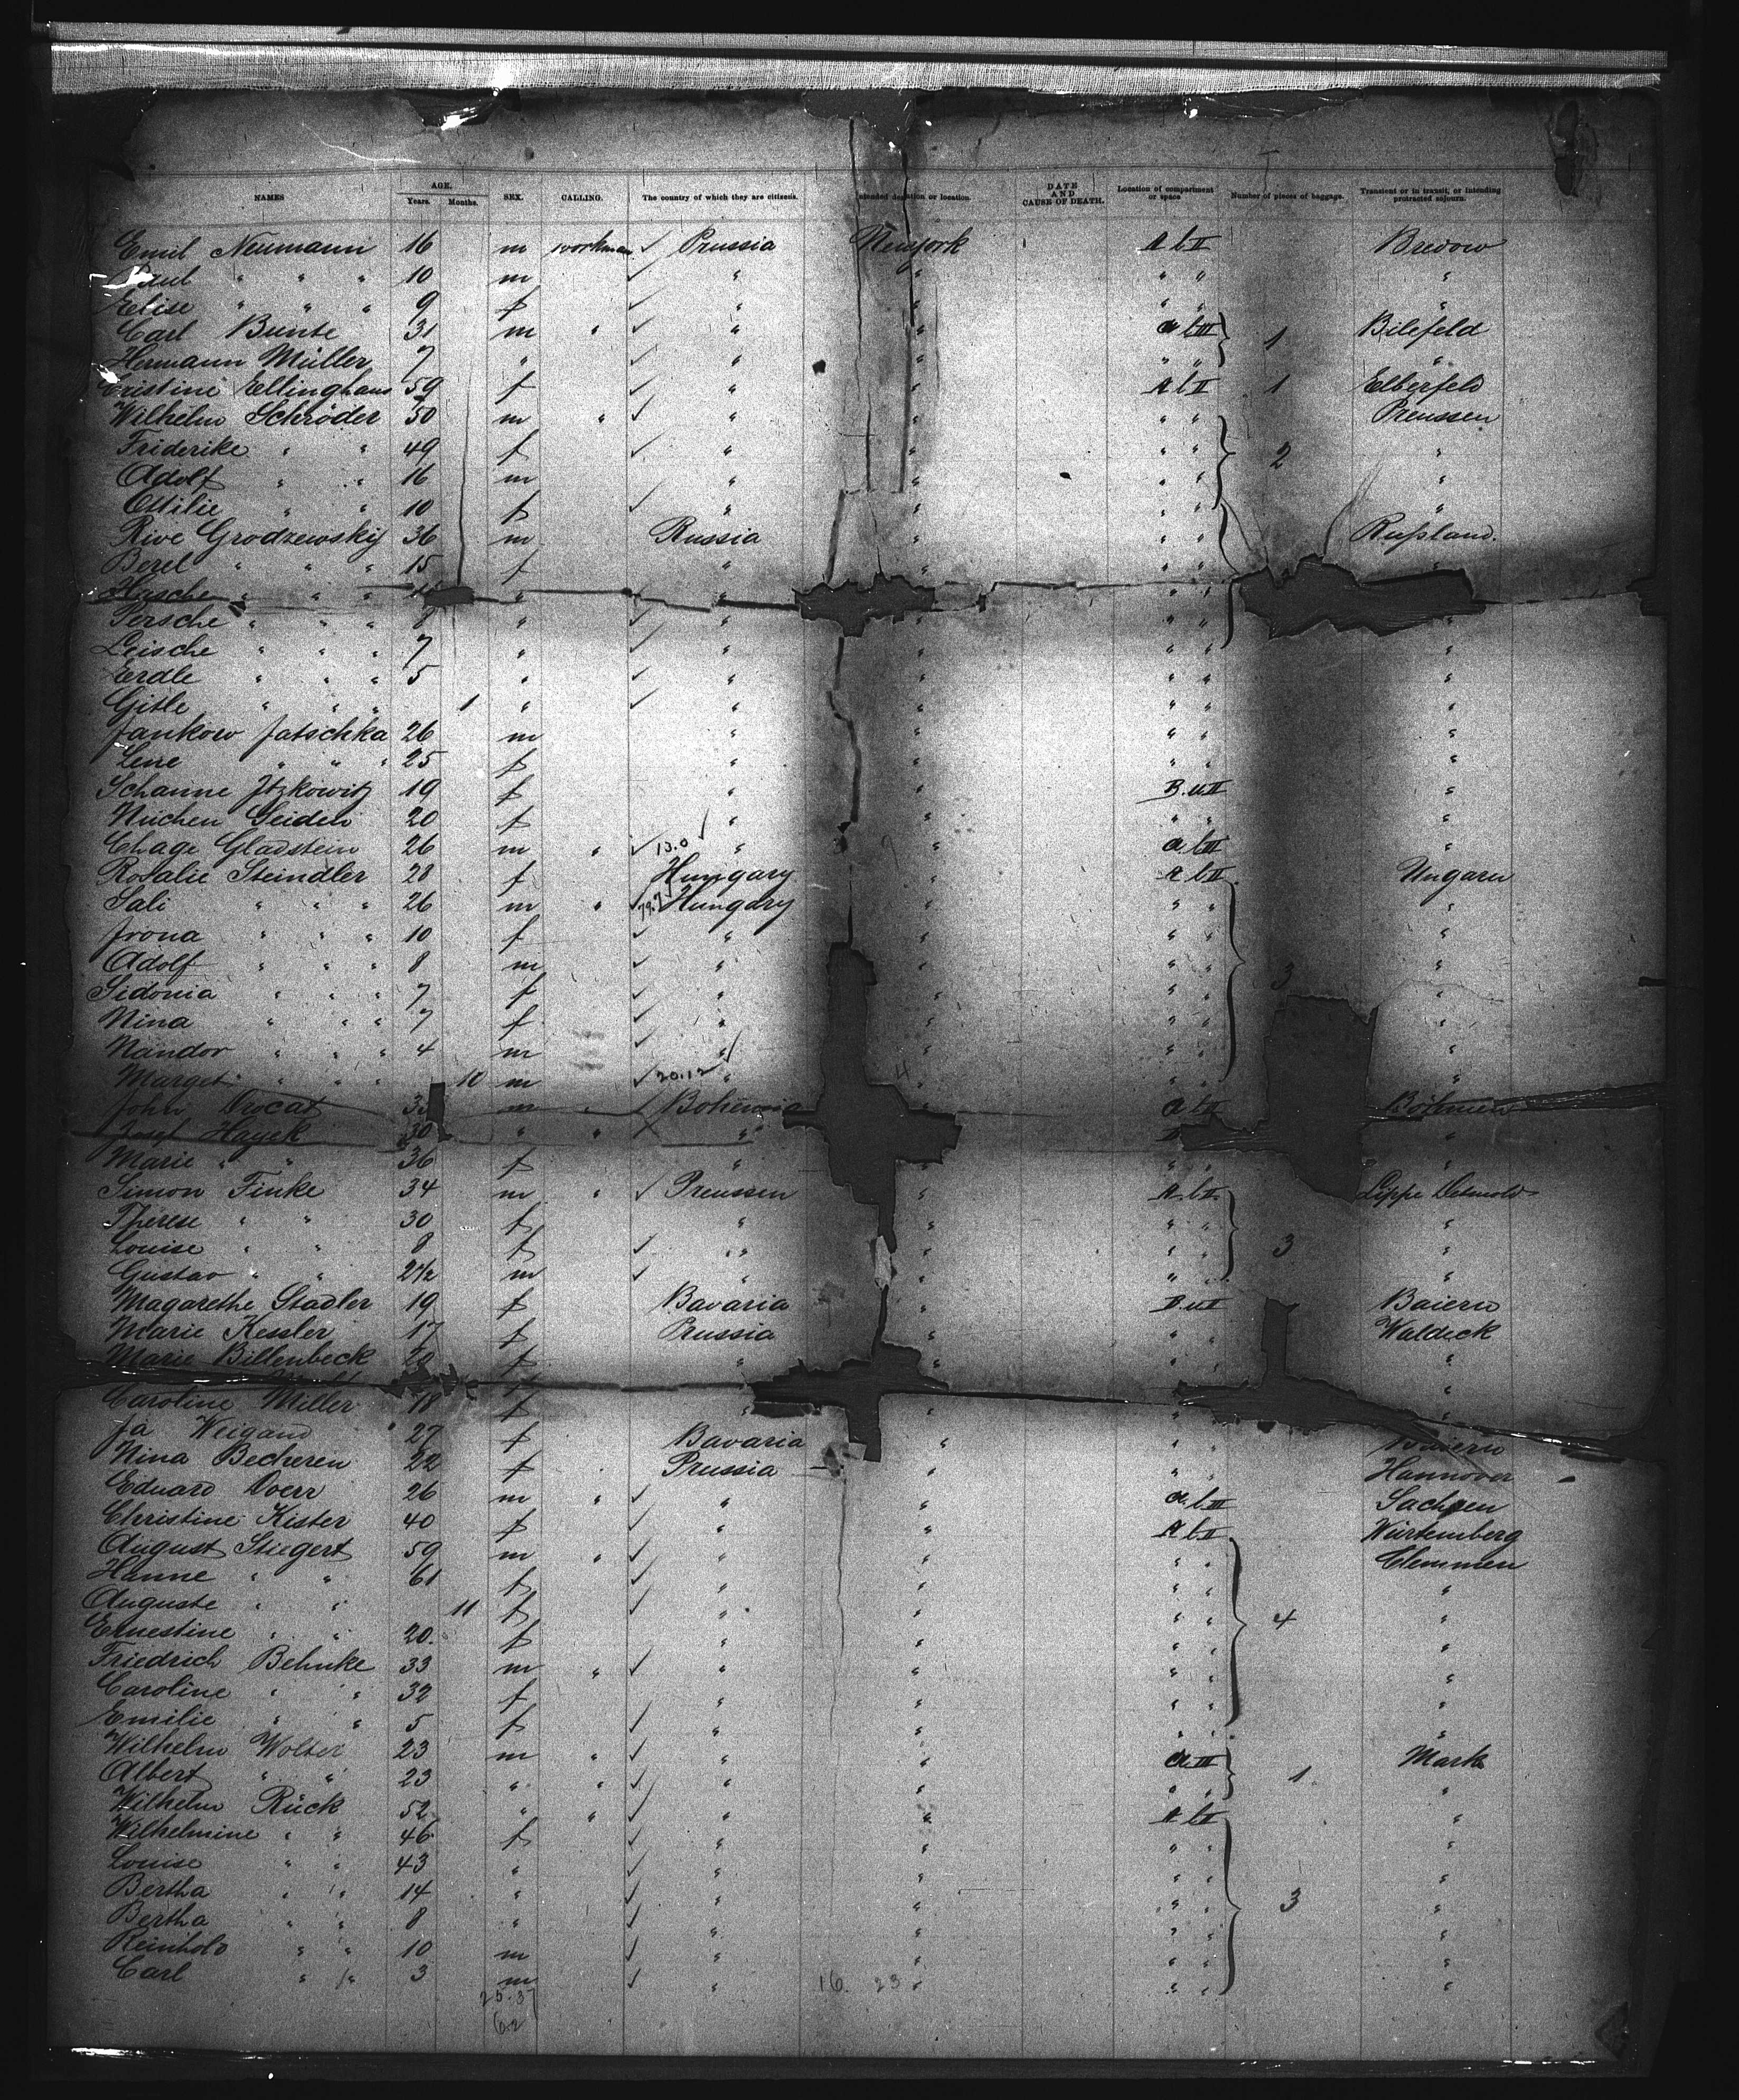 NAMES AGE. Years. Months. SEX. CALLING. The country of which they are citizens. DATE AND CAUSE OF DEATH. Location of compartment or space Number of pieces of baggage. Transient or in transit, or intending protracted sojourn.
Emil Neumann 16 m workman ✓ Prussia Newyork A b II Bredow
" " " 10 m ✓ " " " " "
Elise " " " 9 f ✓ " " " " "
Carl Bunte 31 m " ✓ " " a b III 1 Bilefeld
Hermann Müller 7 " ✓ " " " " "
Cristine Ellinghaus 59 f ✓ " " A b II 1 Elberfeld
Wilhelm Schröder 50 m " ✓ " " " " Preussen
Friderike " " 49 f ✓ " " " " 2 "
Adolf " " 16 m " " " " "
Ottilie " " 10 f ✓ " " " " "
Rive Grodzewskij 36 m Russia " " " Rußland.
Berel " " " 15 f " " " " "
Hasche " " " " " " " "
Persche " " " 8 " ✓ " " " " "
Leische " " " 7 " ✓ " " " " "
Eerdle " " " 5 " ✓ " " " " "
Gitle " " " 1 " ✓ " " " " "
Jankow Jatschka 26 m " " " " "
Lene " " " 25 f " " " " "
Schanne Itzkowitz 19 f " " B. u II "
Nüchen Seiden 20 f " " " " "
Chage Gladstein 26 m " ✓ 13.0 " " a. b III "
Rosalie Steindler 28 f Hungary " A b II Ungarn
Sali " " " 26 m " ✓ Hungary " " " "
Irona " " " 10 f ✓ " " " " "
Adolf " " " 8 m ✓ " " " " "
Sidonia " " " 7 f ✓ " " " " 3 "
Nina " " " 7 f ✓ " " " " "
Nandor " " " 4 m ✓ " " " " "
Marget " " " 10 m ✓ 20.12 " 4 " " "
John 33 m " ✓ Bohemia " a b II Böhmen
Josef Hayek 30 " " " "
Marie " " 36 f " " " " "
Simon Finke 34 m " ✓ Preussen " A. b II. Lippe Detmold
Therese " " 30 f " " " " "
Louise " " 8 f ✓ " " " " 3 "
Gustav " " 2½ m ✓ " " " " "
Magarethe Stadler 19 f Bavaria " B. u II Baiern
Marie Kessler 17 f Prussia " " " Waldeck
Marie Billenbeck 20 f " " " " "
Caroline Miller 18 f " " " "
Ja Weigand 27 f Bavaria " " " Baiern
Nina Becheren 22 f Prussia " " " Hannover
Eduard Doerr 26 m " ✓ " " a. b III Sachsen
Christine Kister 40 f ✓ " " A b II Würtemberg
August Stiegert 59 m " ✓ " " " " Clemmen
Hanne " " 61 f ✓ " " " " "
Auguste " " 11 f ✓ " " " " 4 "
Ernestine " " 20. f " " " " "
Friedrich Behnke 33 m " ✓ " " " " "
Caroline " " 32 f " " " " "
Emilie " " 5 f ✓ " " " " "
Wilhelm Wolter 23 m " ✓ " " a III 1. Mark
Albert " " 23 " " ✓ " " " " "
Wilhelm Rück 52 " " ✓ " " A b II "
Wilhelmine " " 46 f ✓ " " " " "
Louise " " 43 " ✓ " " " " "
Bertha " " 14 " ✓ " " " " 3 "
Bertha " " 8 " ✓ " " " " "
Reinhold " " 10 m ✓ " " " " "
Carl " " 3 m ✓ " 16. 23 " " " "
25.37
62